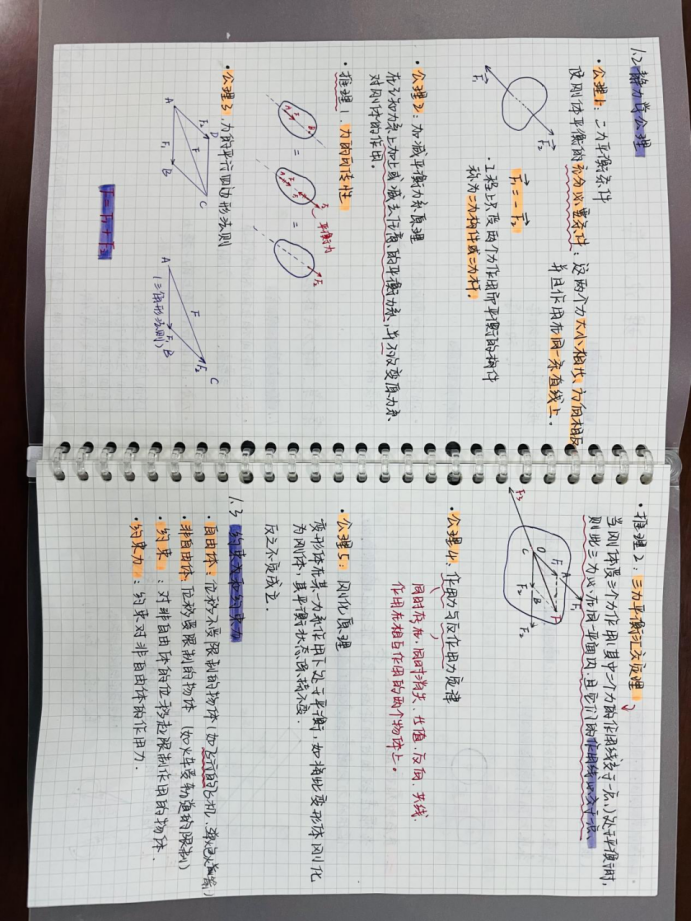 1.2 静力学公理
·公理1：二力平衡条件
使刚体平衡的充分必要条件：这两个力大小相等，方向相反
并且作用在同一条直线上。
F₁
F₂
F₁ = - F₂
·工程上只受两个力作用而平衡的构件
称为二力构件或二力杆。
·公理2：加减平衡力系原理
在已知力系上加上或减去任意的平衡力系，并不改变原力系
对刚体的作用。
·推理1. 力的可传性
=
=
平衡力
·公理3. 力的平行四边形法则
A
F₂
D
F
F₁
B
C
A
F
F₁
B
F₂
C
(三角形法则)
F = F₁ + F₂
·推理2. 三力平衡汇交原理
当刚体受三个力作用(其中二个力的作用线交于一点)处于平衡时,
则此三力必在同一平面内,且它们的作用线必交于一点、
F₃
C
O
A
F₁
F
B
F₂
·公理4. 作用力与反作用力定律
同时存在.同时消失.等值.反向.共线
作用在相互作用的两个物体上。
·公理5. 刚化原理
变形体在某一力系作用下处于平衡,如将此变形体刚化
为刚体,其平衡状态保持不变.
反之不定成立.
1.3 约束力
·自由体:位移不受限制的物体(如飞行的飞机.
·非自由体:位移受限制的物体(如火车受轨道的限制)
·约束:对非自由体的位移起限制作用的物体.
·约束力:约束对非自由体的作用力.